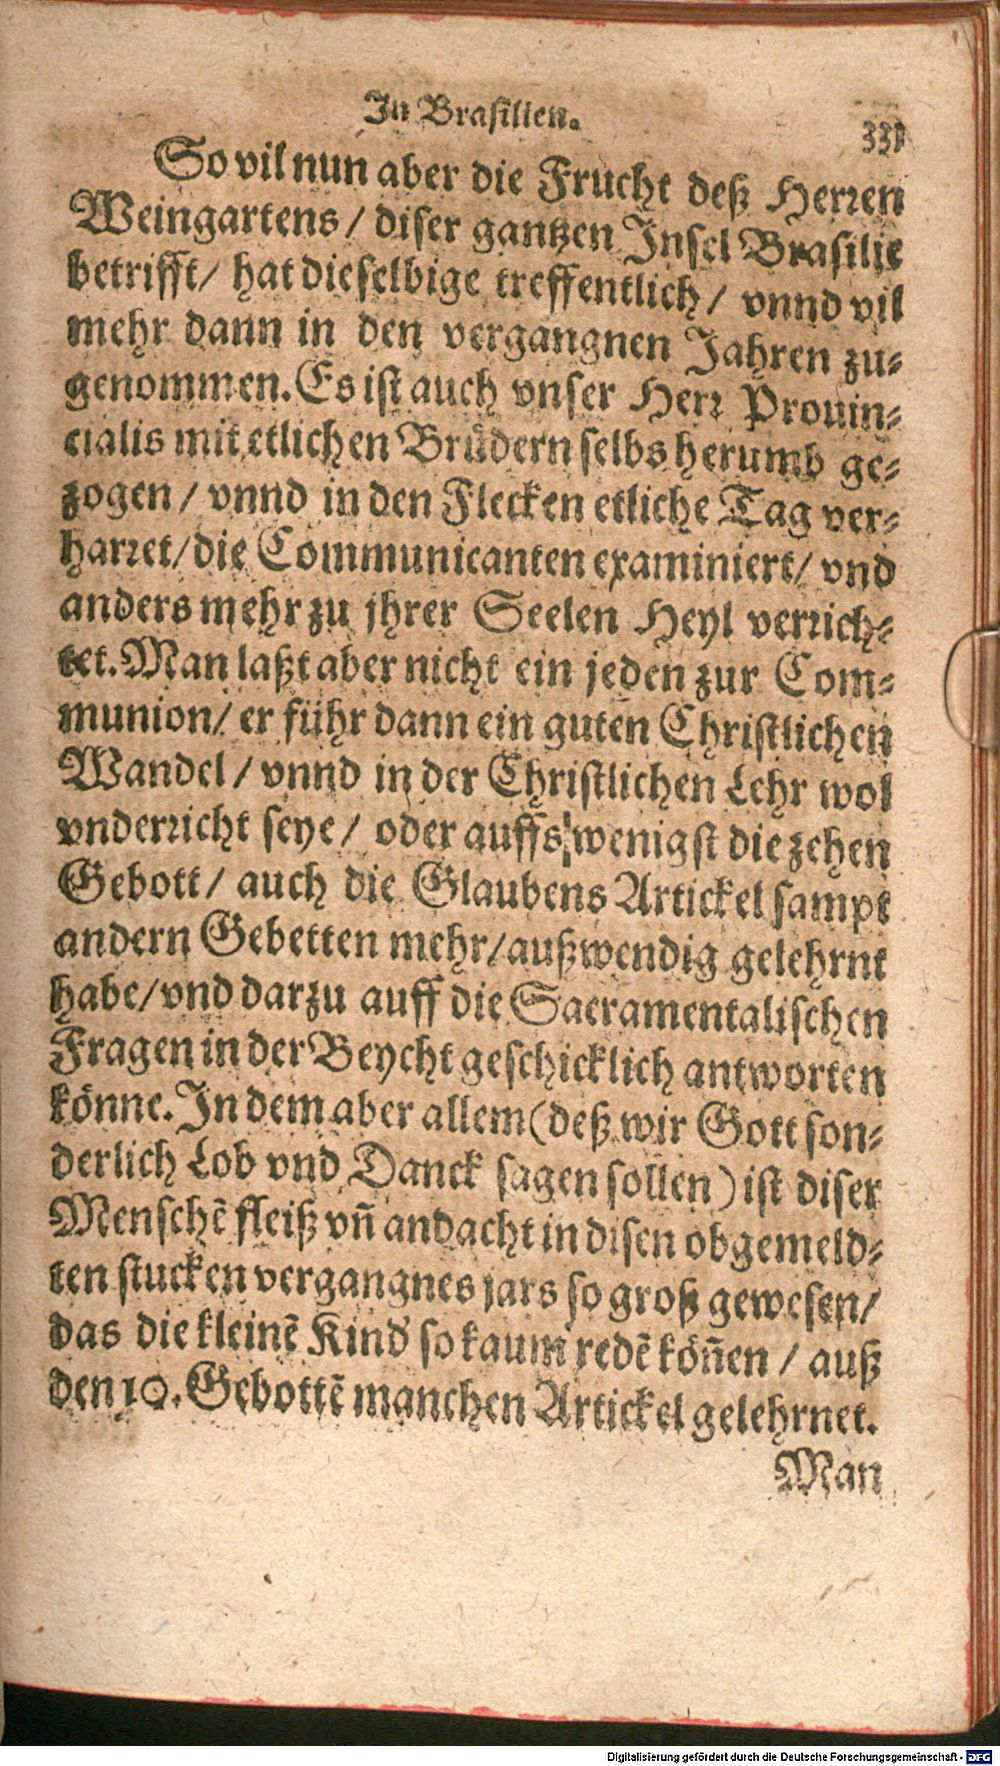 In Brasilien.
331
So vil nun aber die Frucht deß Herren
Weingartens / diser gantzen Insel Brasilie
betrifft / hat dieselbige treffentlich / vnnd vil
mehr dann in den vergangnen Jahren zu-
genommen. Es ist auch vnser Herr Prouin-
cialis mit etlichen Brüdern selbs herumb ge-
zogen / vnnd in den Flecken etliche Tag ver-
harret / die Communicanten examiniert / vnd
anders mehr zu jhrer Seelen Heyl verrich-
tet. Man laßt aber nicht ein jeden zur Com-
munion / er führ dann ein guten Christlichen
Wandel / vnnd in der Christlichen Lehr wol
vnderricht seye / oder auffs wenigst die zehen
Gebott / auch die Glaubens Artickel sampt
andern Gebetten mehr / außwendig gelehrnt
habe / vnd darzu auff die Sacramentalischen
Fragen in der Beycht geschicklich antworten
könne. In dem aber allem (deß wir Gott son-
derlich Lob vnd Danck sagen sollen) ist diser
Menschẽ fleiß vñ andacht in disen obgemeld-
ten stucken vergangnes jars so groß gewesen /
das die kleinẽ Kind so kaum redẽ köñen / auß
den 10. Gebottẽ manchen Artickel gelehrnet.
Man
Digitalisierung gefördert durch die Deutsche Forschungsgemeinschaft - DFG